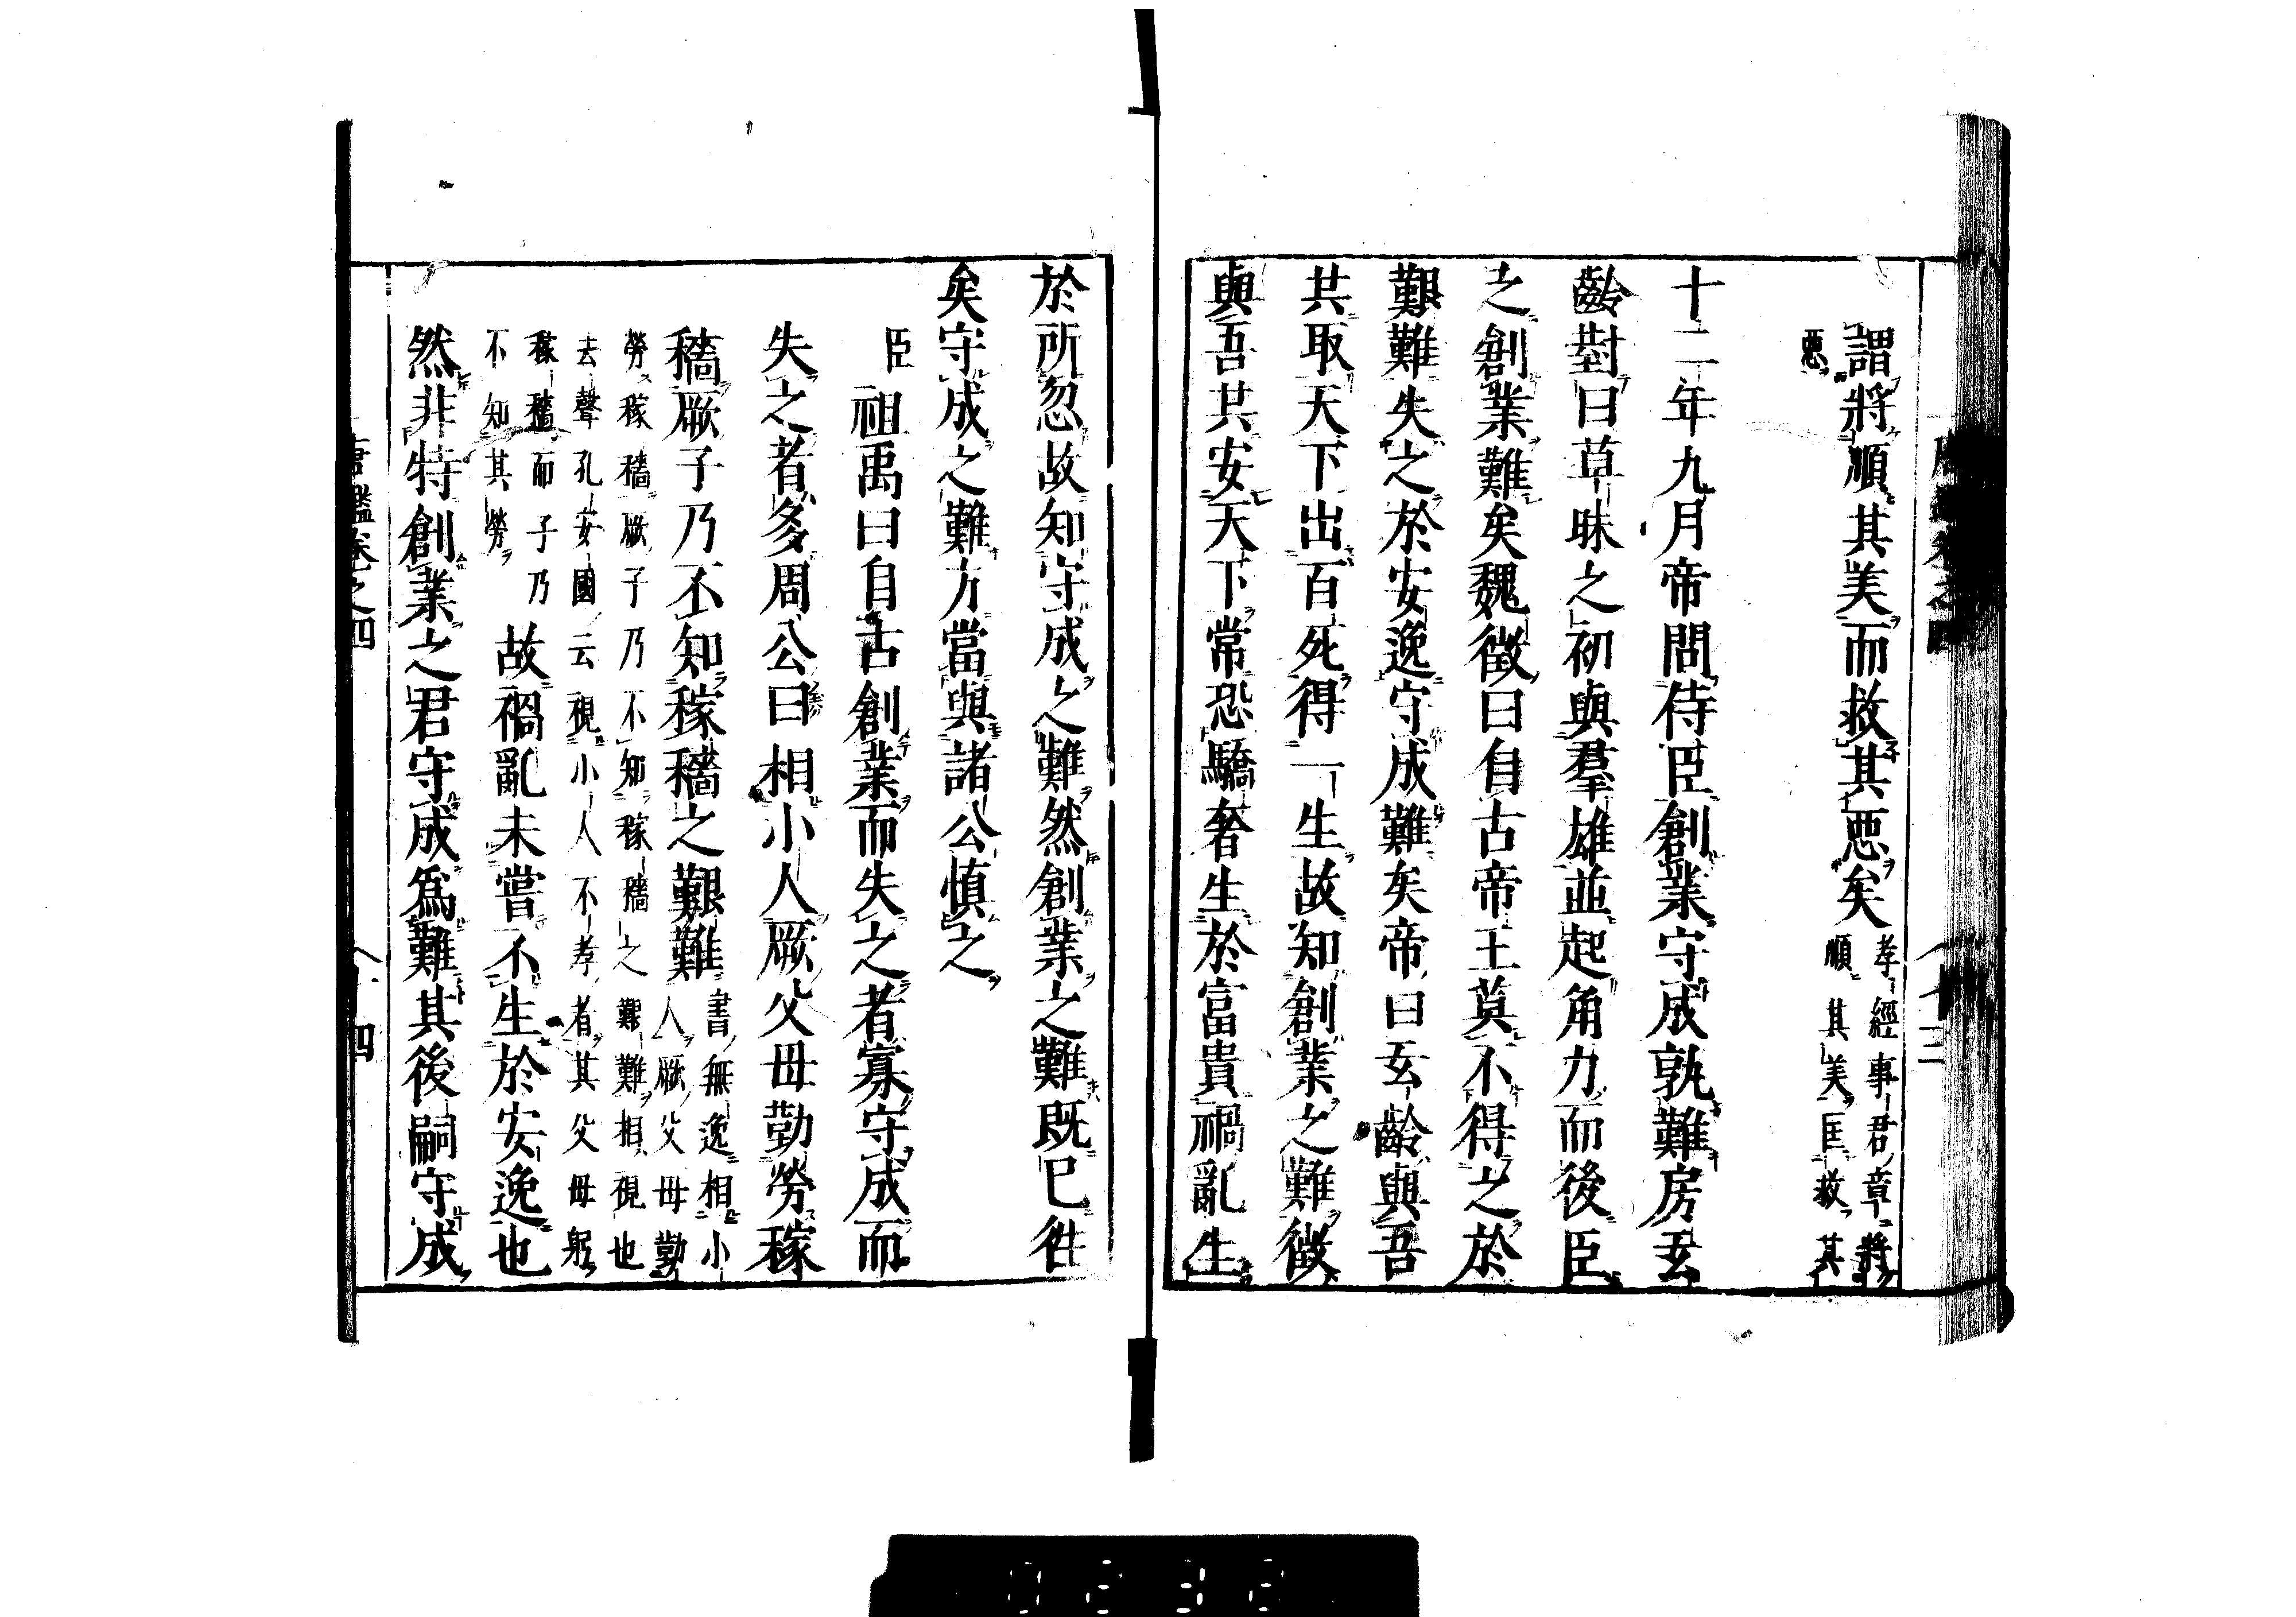 謂將順其美而救其惡矣孝經事君章將
順其美匡救其
惡
十二年九月帝問侍臣創業守成孰難房玄
齡對曰草昧之初與羣雄並起角力而後臣
之創業難矣魏徵曰自古帝王莫不得之於
艱難失之於安逸守成難矣帝曰玄齡與吾
共取天下出百死得一生故知創業之難徵
與吾共安天下常恐驕奢生於富貴禍亂生
於所忽故知守成之難然創業之難既已徃
矣守成之難方當與諸公慎之
臣祖禹曰自古創業而失之者寡守成而
失之者多周公曰相小人厥父母勤勞稼
穡厥子乃不知稼穡之艱難書無逸相小
人厥父母勤
勞稼穡厥子乃不知稼穡之艱難相視也
去聲孔安國云視小人不孝者其父母躬
稼穡而子乃
不知其勞
故禍亂未嘗不生於安逸也
然非特創業之君守成爲難其後嗣守成
唐鑑卷之四
四